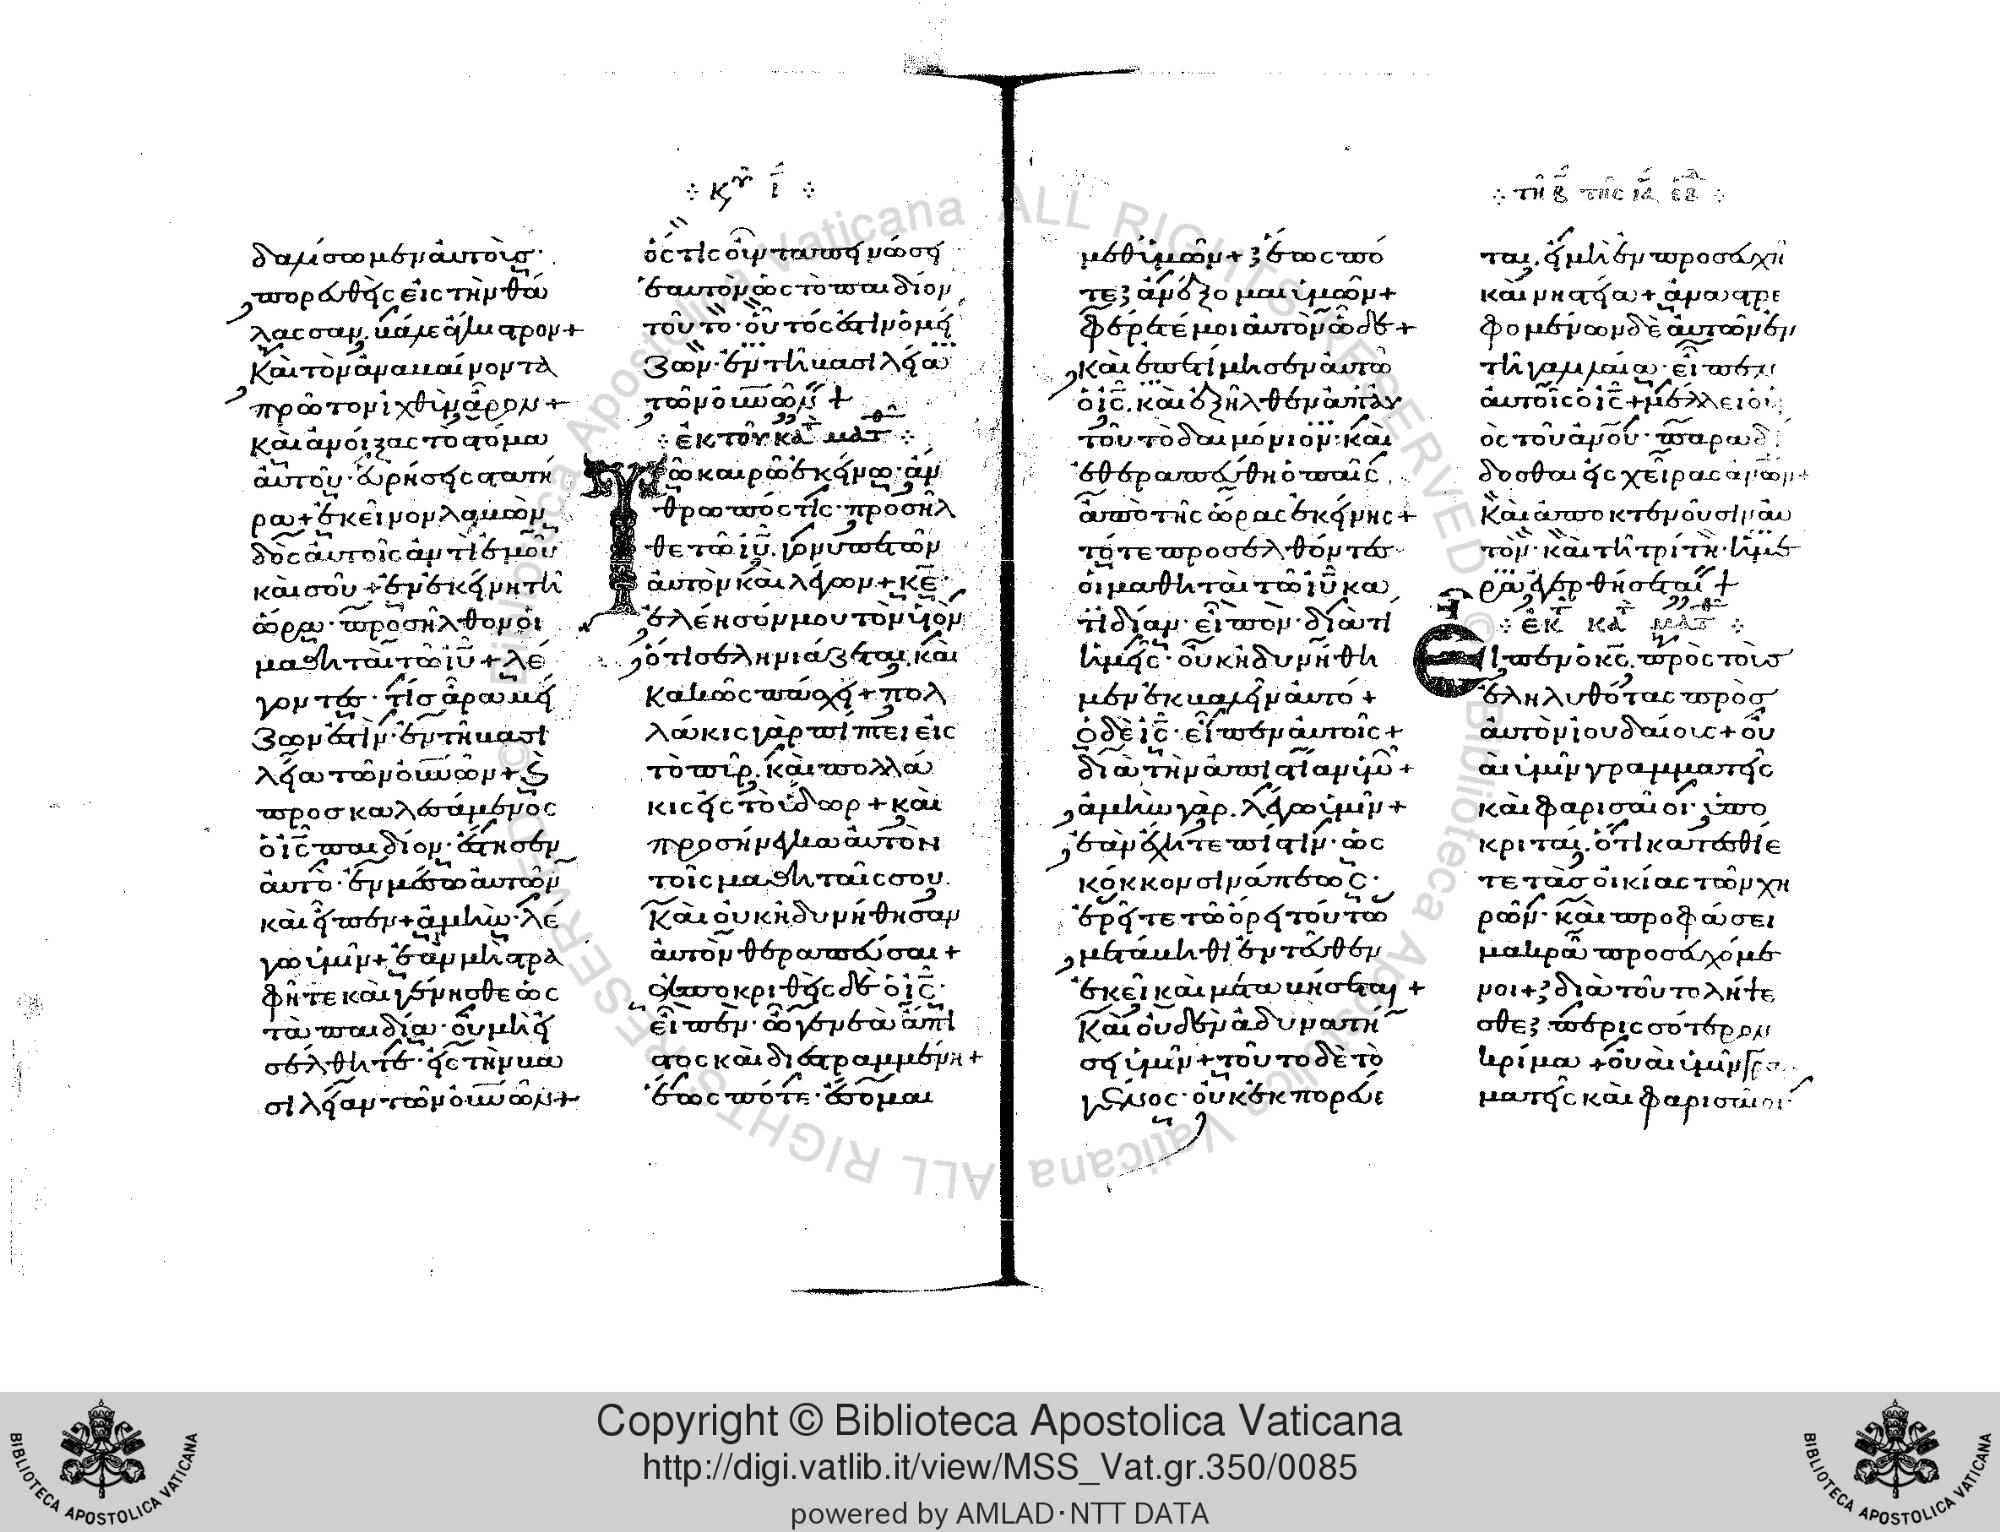 κυ ι
δαλίσωμεν αὐτοὺς·
πορευθεὶς εἰς τὴν θά
λασσαν, βάλε ἄγκιστρον+
Καὶ τὸν ἀναβαίνοντα
πρῶτον ἰχθὺν ἆρον+
καὶ ἀνοίξας τὸ στόμα
αὐτοῦ· εὑρήσεις στατῆ
ρα+ ἐκεῖνον λαβὼν
δὸς αὐτοῖς ἀντὶ ἐμοῦ
καὶ σοῦ+ ἐν ἐκείνῃ τῇ
ὥρα· προσῆλθον οἱ
μαθηταὶ τῶ ἰῦ+ λέ
γοντες· τίς ἄρα μεί
ζων ἐστὶν· ἐν τῇ βασι
λεία τῶν οὐνῶν+ ϗ
προσκαλεσάμενος
ὁ ἰς παιδίον· ἔστησεν
αὐτὸ· ἐν μέσω αὐτῶν
καὶ εἶπεν+ ἀμὴν· λέ
γω ὑμῖν+ ἐὰν μὴ στρα
φῆτε καὶ γένησθε ὡς
τὰ παιδία· οὐ μὴ εἰ
σέλθητε· εἰς τὴν βα
σιλείαν τῶν οὐνῶν+
ὅστις οὖν ταπεινώσει
ἑαυτὸν ὡς τὸ παιδίον
τοῦτο· οὗτός ἐστιν ὁ μεί
ζων· ἐν τῇ βασιλεία
τῶν οὐνῶν+
ἐκ τοῦ κατ ματθ
Τῶ καιρῶ ἐκείνω· ἄν
θρωπός τις· προσῆλ
θε τῶ ἰῦ, γονυπετῶν
αὐτὸν καὶ λέγων+ κε·
ἐλέησόν μου τὸν υἱὸν
ὅτι σεληνιάζεται, καὶ
κακῶς πάσχει+ πολ
λάκις γὰρ πίπτει εἰς
τὸ πῦρ, καὶ πολλά
κις εἰς τὸ ὕδωρ+ καὶ
προσήνεγκα αὐτὸν
τοῖς μαθηταῖς σου,
Καὶ οὐκ ἠδυνήθησαν
αὐτὸν θεραπεῦσαι+
ἀποκριθεὶς δὲ ὁ ἰς·
εἶπεν· ὦ γενεὰ ἄπι
στος καὶ διεστραμμένη+
ἕως πότε· ἔσομαι
τη β της ια εβ
μεθ' ὑμῶν+ ἕως πό
τε ἀνέξομαι ὑμῶν+
φέρετέ μοι αὐτὸν ὧδε+
Καὶ ἐπετίμησεν αὐτῶ
ὁ ἰς, καὶ ἐξῆλθεν ἀπ' αυ
τοῦ τὸ δαιμόνιον· καὶ
ἐθεραπεύθη ὁ παῖς,
ἀπὸ τῆς ὥρας ἐκείνης+
τότε προσελθόντες
οἱ μαθηταὶ τῶ ἰῦ κα
τ' ἰδίαν· εἶπον· διὰ τί
ἡμεῖς· οὐκ ἠδυνήθη
μεν ἐκβαλεῖν αὐτό+
ὁ δὲ ἰς· εἶπεν αὐτοῖς+
διὰ τὴν ἀπιστίαν ὑμῶν+
ἀμὴν γὰρ, λέγω ὑμῖν+
ἐὰν ἔχητε πίστιν· ὡς
κόκκον σινάπεως·
ἐρεῖτε τῶ ὄρει τούτω
μετάβηθι ἐντεῦθεν
ἐκεῖ καὶ μεταβήσεται+
Καὶ οὐδὲν ἀδυνατή
σει ὑμῖν+ τοῦτο δὲ τὸ
γένος· οὐκ ἐκπορεύε
ται, εἰ μὴ ἐν προσευχῆ
καὶ νηστεία+ ἀναστρε
φομένων δὲ αὐτῶν ἐν
τῇ γαλιλαία· εἶπεν
αὐτοῖς ὁ ἰς+ μέλλει ὁ υ
ὸς τοῦ ἀνου· παραδί
δοσθαι εἰς χεῖρας ἀνων+
Καὶ ἀποκτενοῦσιν αὐ
τὸν· καὶ τῇ τρίτη· ἡμέ
ρα ἐγερθήσεται+
ἐκ τ κατ ματθ
Εἶπεν ὁ κς, πρὸς τοὺς
ἐληλυθότας πρὸς
αὐτὸν ἰουδαίους+ οὐ
αὶ ὑμῖν γραμματεῖς
καὶ φαρισαῖοι· ὑπο
κριταί, ὅτι κατεσθίε
τε τὰς οἰκίας τῶν χη
ρῶν· καὶ προφάσει
μακρᾶ προσευχόμε
νοι+ διὰ τοῦτο λήψε
σθε· περισσότερον
κρίμα+ οὐαὶ ὑμῖν γρα
ματεῖς καὶ φαρισαῖοι·
Copyright © Biblioteca Apostolica Vaticana
http://digi.vatlib.it/view/MSS_Vat.gr.350/0085
powered by AMLAD·NTT DATA
BIBLIOTECA APOSTOLICA VATICANA
BIBLIOTECA APOSTOLICA VATICANA